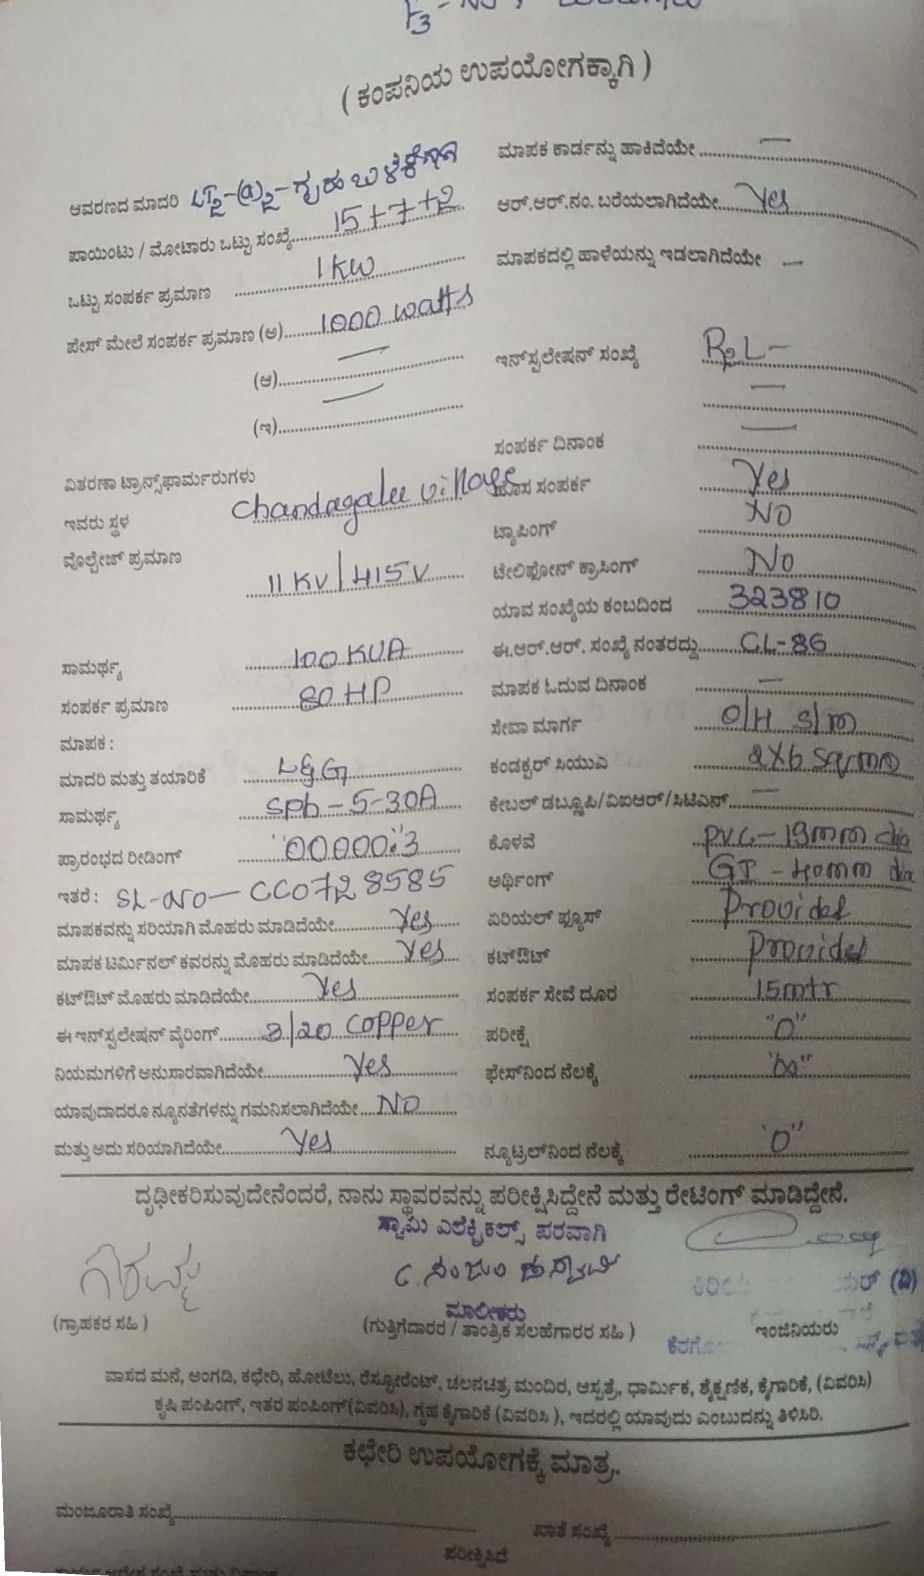 ( ಕಂಪನಿಯ ಉಪಯೋಗಕ್ಕಾಗಿ )
ಆವರಣದ ಮಾದರಿ LT2-(a)2-ಗೃಹ ಬಳಕೆಗಾಗಿ
ಪಾಯಿಂಟು / ಮೋಟಾರು ಒಟ್ಟು ಸಂಖ್ಯೆ 15+7+2
ಒಟ್ಟು ಸಂಪರ್ಕ ಪ್ರಮಾಣ 1KW
ಪೇಸ್ ಮೇಲೆ ಸಂಪರ್ಕ ಪ್ರಮಾಣ (ಅ) 1000 watts
(ಆ) —
(ಇ) —
ವಿತರಣಾ ಟ್ರಾನ್ಸ್‌ಫಾರ್ಮರುಗಳು
ಇವರು ಸ್ಥಳ Chandagalu village
ವೊಲ್ಟೇಜ್ ಪ್ರಮಾಣ
11 KV / 415 V
ಸಾಮರ್ಥ್ಯ 100 KVA
ಸಂಪರ್ಕ ಪ್ರಮಾಣ 80 HP
ಮಾಪಕ :
ಮಾದರಿ ಮತ್ತು ತಯಾರಿಕೆ L&G
ಸಾಮರ್ಥ್ಯ Sph - 5-30A
ಪ್ರಾರಂಭದ ರೀಡಿಂಗ್ "00000.3
ಇತರೆ : SL-No - CC0728585
ಮಾಪಕವನ್ನು ಸರಿಯಾಗಿ ಮೊಹರು ಮಾಡಿದೆಯೇ Yes
ಮಾಪಕ ಟರ್ಮಿನಲ್ ಕವರನ್ನು ಮೊಹರು ಮಾಡಿದೆಯೇ Yes
ಕಟ್‌ಔಟ್ ಮೊಹರು ಮಾಡಿದೆಯೇ Yes
ಈ ಇನ್‌ಸ್ಟಲೇಷನ್ ವೈರಿಂಗ್ 3/20 Copper
ನಿಯಮಗಳಿಗೆ ಅನುಸಾರವಾಗಿದೆಯೇ Yes
ಯಾವುದಾದರೂ ನ್ಯೂನತೆಗಳನ್ನು ಗಮನಿಸಲಾಗಿದೆಯೇ NO
ಮತ್ತು ಅದು ಸರಿಯಾಗಿದೆಯೇ Yes
ಮಾಪಕ ಕಾರ್ಡನ್ನು ಹಾಕಿದೆಯೇ —
ಆರ್.ಆರ್.ನಂ. ಬರೆಯಲಾಗಿದೆಯೇ Yes
ಮಾಪಕದಲ್ಲಿ ಹಾಳೆಯನ್ನು ಇಡಲಾಗಿದೆಯೇ —
ಇನ್‌ಸ್ಪಲೇಷನ್ ಸಂಖ್ಯೆ
—
ಸಂಪರ್ಕ ದಿನಾಂಕ —
ಹೊಸ ಸಂಪರ್ಕ Yes
ಟ್ಯಾಪಿಂಗ್ NO
ಟೇಲಿಫೋನ್ ಕ್ರಾಸಿಂಗ್ No
ಯಾವ ಸಂಖ್ಯೆಯ ಕಂಬದಿಂದ 323810
ಈ.ಆರ್.ಆರ್. ಸಂಖ್ಯೆ ನಂತರದ್ದು CL-86
ಮಾಪಕ ಓದುವ ದಿನಾಂಕ —
ಸೇವಾ ಮಾರ್ಗ O/H S/m
ಕಂಡಕ್ಟರ್ ಸಿಯುಎ 2X6 sqmm
ಕೇಬಲ್ ಡಬ್ಲೂಪಿ/ವಿಐಆರ್/ಸಿಟಿಎಸ್ —
ಕೊಳವೆ PVC - 19mm dia
ಅರ್ಥಿಂಗ್ GI - 40mm dia
ಏರಿಯಲ್ ಫ್ಯೂಸ್ Provided
ಕಟ್‌ಔಟ್ Provided
ಸಂಪರ್ಕ ಸೇವೆ ದೂರ 15mtr
ಪರೀಕ್ಷೆ "0"
ಫೇಸ್‌ನಿಂದ ನೆಲಕ್ಕೆ
ನ್ಯೂಟ್ರಲ್‌ನಿಂದ ನೆಲಕ್ಕೆ '0'
ದೃಢೀಕರಿಸುವುದೇನೆಂದರೆ, ನಾನು ಸ್ಥಾವರವನ್ನು ಪರೀಕ್ಷಿಸಿದ್ದೇನೆ ಮತ್ತು ರೇಟಿಂಗ್ ಮಾಡಿದ್ದೇನೆ.
ಸ್ವಾಮಿ ಎಲೆಕ್ಟ್ರಿಕಲ್ಸ್ ಪರವಾಗಿ
ಮಾಲೀಕರು
(ಗ್ರಾಹಕರ ಸಹಿ )
(ಗುತ್ತಿಗೆದಾರರ / ತಾಂತ್ರಿಕ ಸಲಹೆಗಾರರ ಸಹಿ )
ಇಂಜಿನಿಯರು
ವಾಸದ ಮನೆ, ಅಂಗಡಿ, ಕಛೇರಿ, ಹೋಟೆಲು, ರೆಸ್ಟೋರೆಂಟ್, ಚಲನಚಿತ್ರ ಮಂದಿರ, ಆಸ್ಪತ್ರೆ, ಧಾರ್ಮಿಕ, ಶೈಕ್ಷಣಿಕ, ಕೈಗಾರಿಕೆ, (ವಿವರಿಸಿ)
ಕೃಷಿ ಪಂಪಿಂಗ್, ಇತರ ಪಂಪಿಂಗ್(ವಿವರಿಸಿ), ಗೃಹ ಕೈಗಾರಿಕೆ (ವಿವರಿಸಿ ), ಇದರಲ್ಲಿ ಯಾವುದು ಎಂಬುದನ್ನು ತಿಳಿಸಿರಿ.
ಕಛೇರಿ ಉಪಯೋಗಕ್ಕೆ ಮಾತ್ರ.
ಮಂಜೂರಾತಿ ಸಂಖ್ಯೆ
ಖಾತೆ ಸಂಖ್ಯೆ
ಪರೀಕ್ಷಿಸಿದೆ